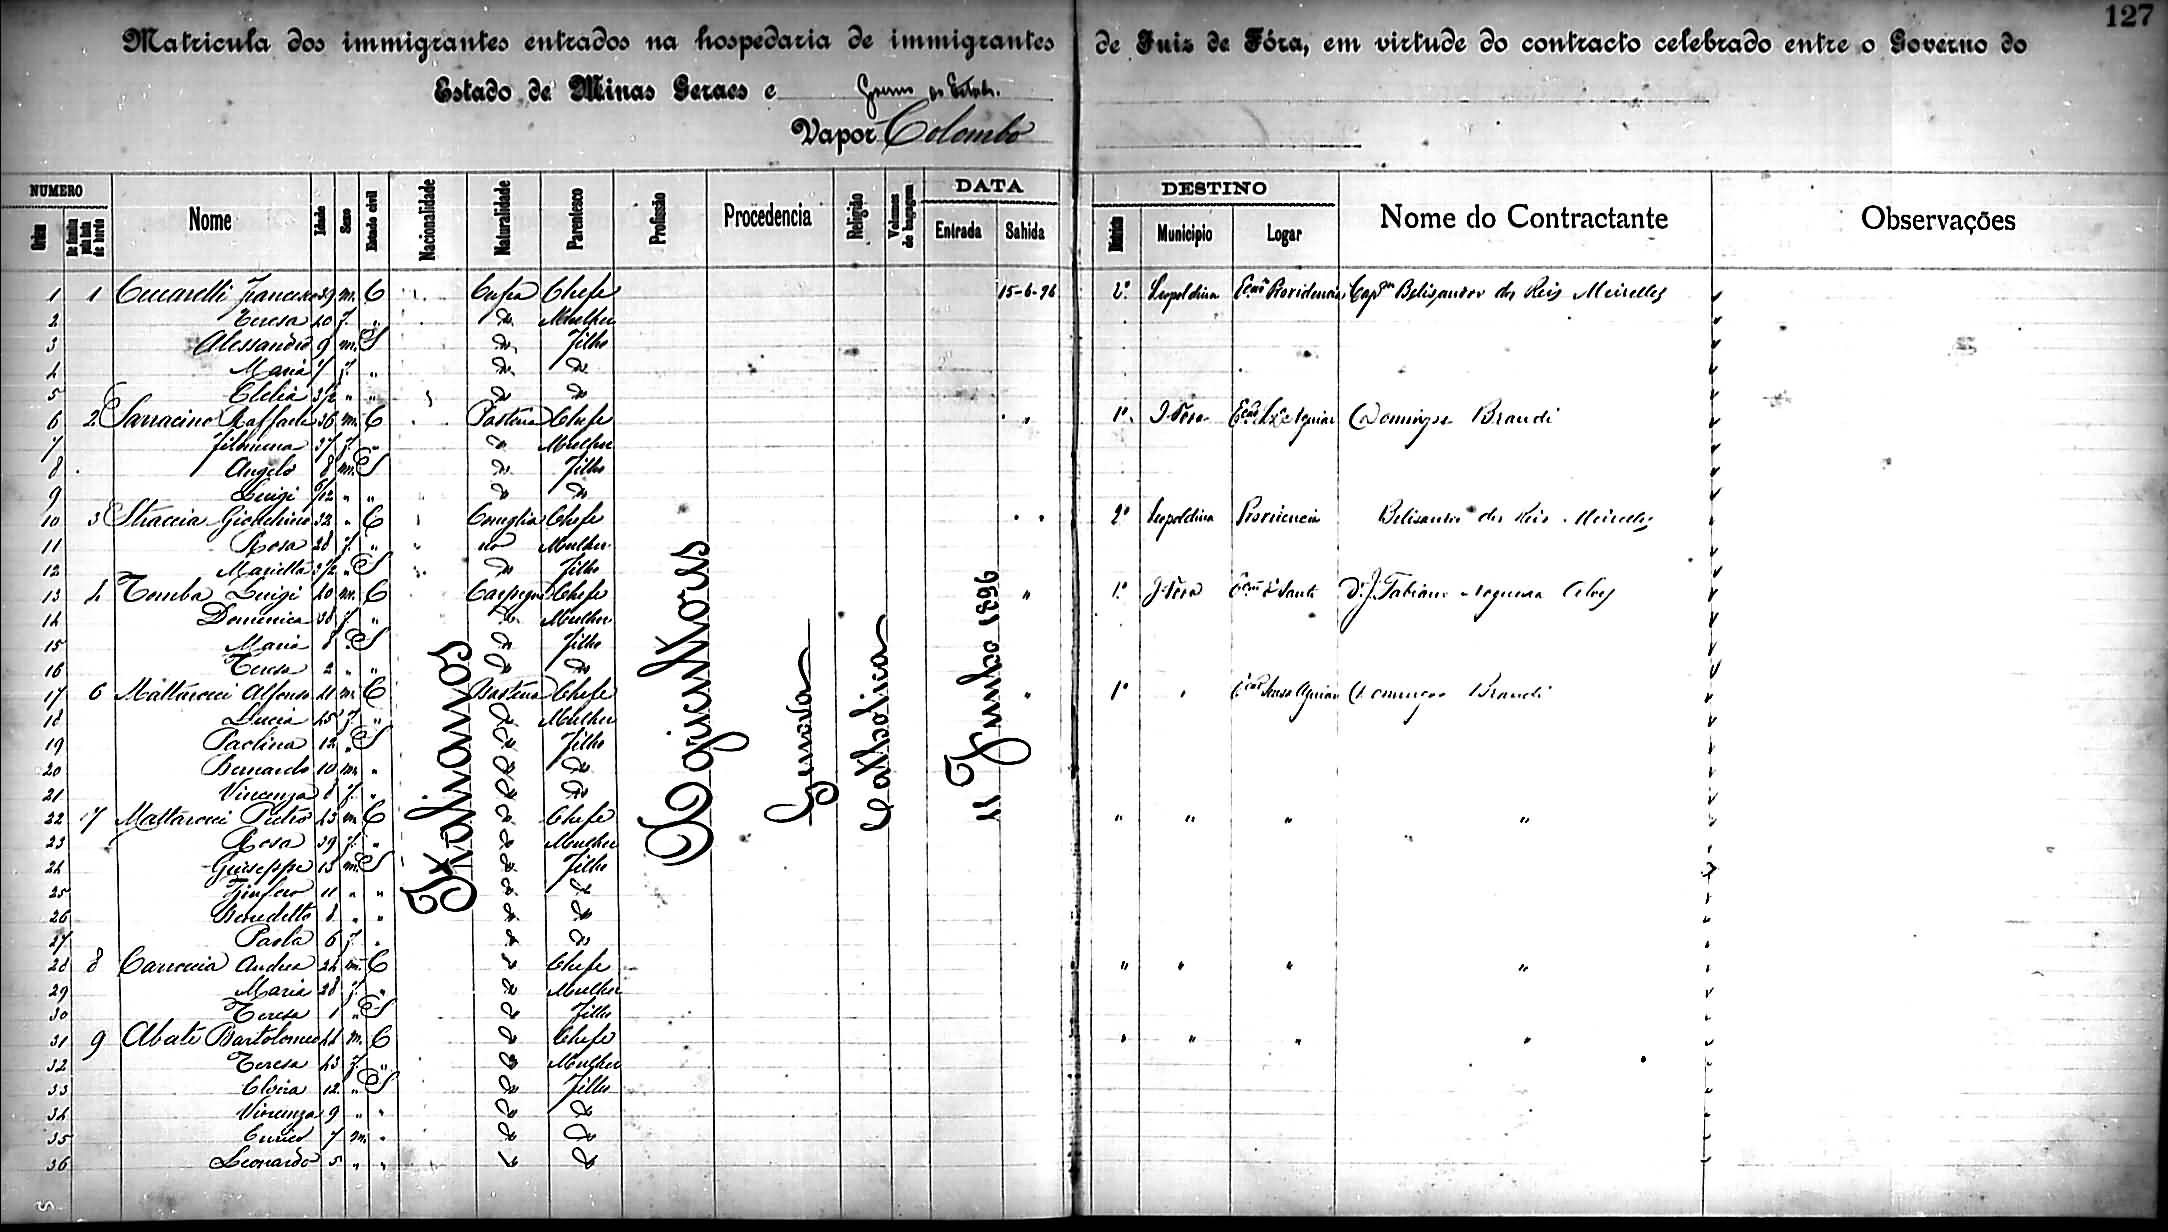 127
Matricula dos immigrantes entrados na hospedaria de immigrantes de Juiz de Fóra, em virtude do contracto celebrado entre o Governo do
Estado de Minas Geraes e Governo do Estado.
Vapor Colombo
NUMERO DATA DESTINO
Ordem Nome Idade Sexo Estado civil Nacionalidade Naturalidade Parentesco Profissão Procedencia Religião Volumes de bagagem Entrada Sahida Districto Municipio Logar Nome do Contractante Observações
Italianos
Agricultores
Genova
Catholica
11 Junho 1896
1 1 Ceccarelli Francesco 39 m. C Chefe 15-6-96 2º Leopoldina Providencia Capm Belisandro dos Reis Meirelles
2 Teresa 40 f. " do Mulher
3 Alessandro 9 m. S do Filho
4 Maria 7 f. " do do
5 Clelia 3/12 " " do do
6 2 Sarracino Raffaele 36 m. C Pastena Chefe " 1º J. Fora Domingos Brandi
7 Filomena 37 f. " do Mulher
8 Angelo 8 m. S do Filho
9 Luigi /12 " " do do
10 3 Straccia Gioachino 32 " C Chefe " " 2º Leopoldina Providencia Belisandro dos Reis Meirelles
11 Rosa 28 f. " do Mulher
12 Marietta 3/12 " S do Filho
13 4 Tomba Luigi 40 m. C Chefe " 1º J. Fora Dr. J. Fabiano Alves
14 Domenica 38 f. " do Mulher
15 Maria 8 " S do Filho
16 Teresa 2 " " do do
17 6 Mattarocci Alfonso 41 m. C Pastena Chefe " 1º " Domingos Brandi
18 Lucia 45 f. " do Mulher
19 Paolina 12 " S do Filho
20 Bernardo 10 m. " do do
21 Vincenza 8 f. " do do
22 7 Mattarocci Pietro 43 m C do Chefe " " " "
23 Rosa 39 f. " do Mulher
24 Giuseppe 15 m. S do Filho
25 11 " " do do
26 Benedetto 8 " " do do
27 Paola 6 f. " do do
28 8 Carroccia Andrea 24 m. C do Chefe " " " "
29 Maria 28 f. " do Mulher
30 Teresa 1 " S do Filho
31 9 Abate Bartolomeo 44 m. C do Chefe " " " "
32 Teresa 43 f. " do Mulher
33 Elvira 12 " S do Filho
34 Vincenza 9 " " do do
35 Enrico 7 m. " do do
36 Leonardo 5 " " do do